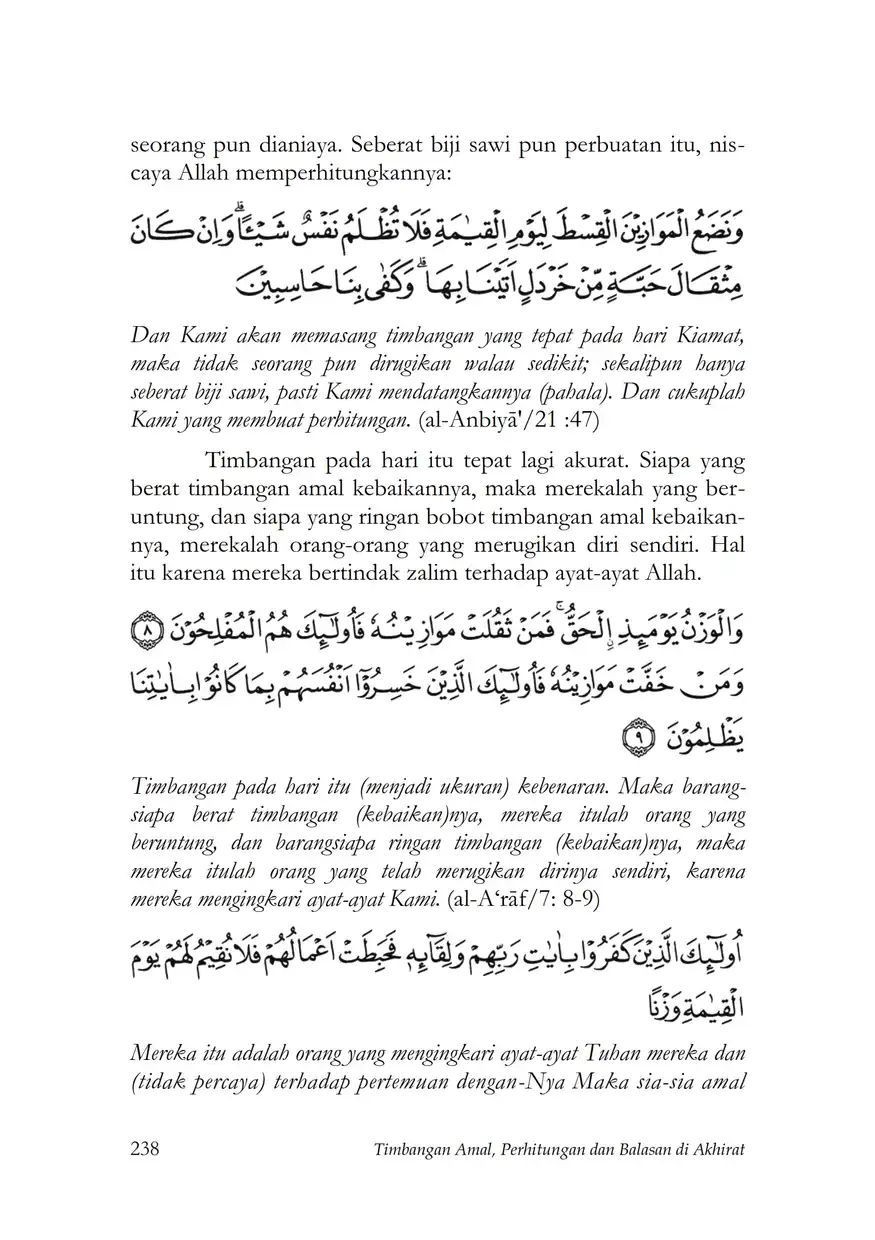 seorang pun dianiaya. Seberat biji sawi pun perbuatan itu, nis-
caya Allah memperhitungkannya:
وَنَضَعُ الْمَوَازِيْنَ الْقِسْطَ لِيَوْمِ الْقِيٰمَةِ فَلَا تُظْلَمُ نَفْسٌ شَيْـًٔاۗ وَاِنْ كَانَ
مِثْقَالَ حَبَّةٍ مِّنْ خَرْدَلٍ اَتَيْنَا بِهَاۗ وَكَفٰى بِنَا حَاسِبِيْنَ
Dan Kami akan memasang timbangan yang tepat pada hari Kiamat,
maka tidak seorang pun dirugikan walau sedikit; sekalipun hanya
seberat biji sawi, pasti Kami mendatangkannya (pahala). Dan cukuplah
Kami yang membuat perhitungan. (al-Anbiyā'/21 :47)
Timbangan pada hari itu tepat lagi akurat. Siapa yang
berat timbangan amal kebaikannya, maka merekalah yang ber-
untung, dan siapa yang ringan bobot timbangan amal kebaikan-
nya, merekalah orang-orang yang merugikan diri sendiri. Hal
itu karena mereka bertindak zalim terhadap ayat-ayat Allah.
وَالْوَزْنُ يَوْمَىِٕذِ ࣙالْحَقُّۚ فَمَنْ ثَقُلَتْ مَوَازِيْنُهٗ فَاُولٰۤىِٕكَ هُمُ الْمُفْلِحُوْنَ ٨
وَمَنْ خَفَّتْ مَوَازِيْنُهٗ فَاُولٰۤىِٕكَ الَّذِيْنَ خَسِرُوْٓا اَنْفُسَهُمْ بِمَا كَانُوْا بِاٰيٰتِنَا
يَظْلِمُوْنَ ٩
Timbangan pada hari itu (menjadi ukuran) kebenaran. Maka barang-
siapa berat timbangan (kebaikan)nya, mereka itulah orang yang
beruntung, dan barangsiapa ringan timbangan (kebaikan)nya, maka
mereka itulah orang yang telah merugikan dirinya sendiri, karena
mereka mengingkari ayat-ayat Kami. (al-A‘rāf/7: 8-9)
اُولٰۤىِٕكَ الَّذِيْنَ كَفَرُوْا بِاٰيٰتِ رَبِّهِمْ وَلِقَاۤىِٕهٖ فَحَبِطَتْ اَعْمَالُهُمْ فَلَا نُقِيْمُ لَهُمْ يَوْمَ
الْقِيٰمَةِ وَزْنًا
Mereka itu adalah orang yang mengingkari ayat-ayat Tuhan mereka dan
(tidak percaya) terhadap pertemuan dengan-Nya Maka sia-sia amal
238 Timbangan Amal, Perhitungan dan Balasan di Akhirat